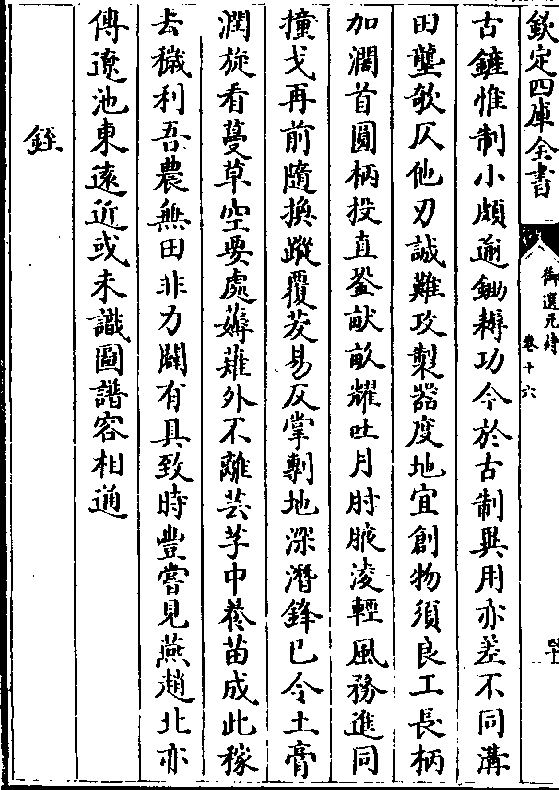 欽定四庫全書
御選元詩
卷十六
古鏟惟制小頗邇鋤耨功今於古制異用亦差不同溝
田壟欹仄他刃誠難攻製器度地宜創物須良工長柄
加濶首圓柄投直銎畎畝耀吐月肘腋淩輕風務進同
撞戈再前隨換蹤覆芟易反掌剸地深潛鋒已令土膏
潤旋看蔓草空要處薅薙外不離芸芋中苗成此稼
去穢利吾農無田非力闢有具致時豐嘗見燕趙北亦
傳遼池東遠近或未識圖譜容相通
銍